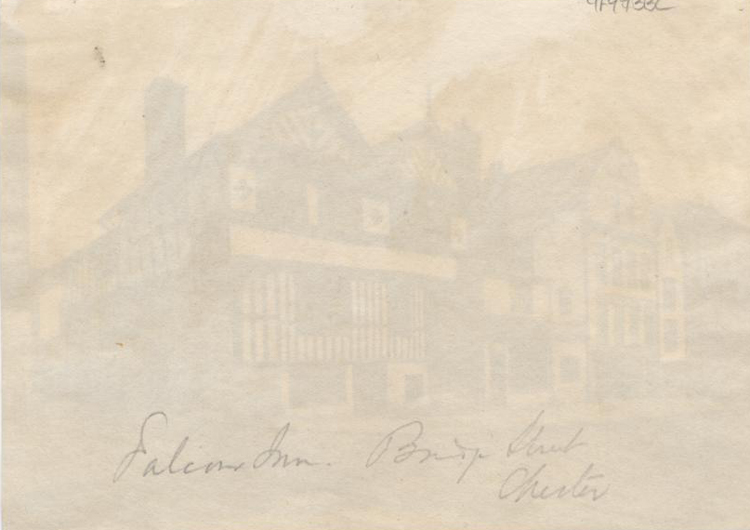 Falcon Inn. Bridge Street
Chester